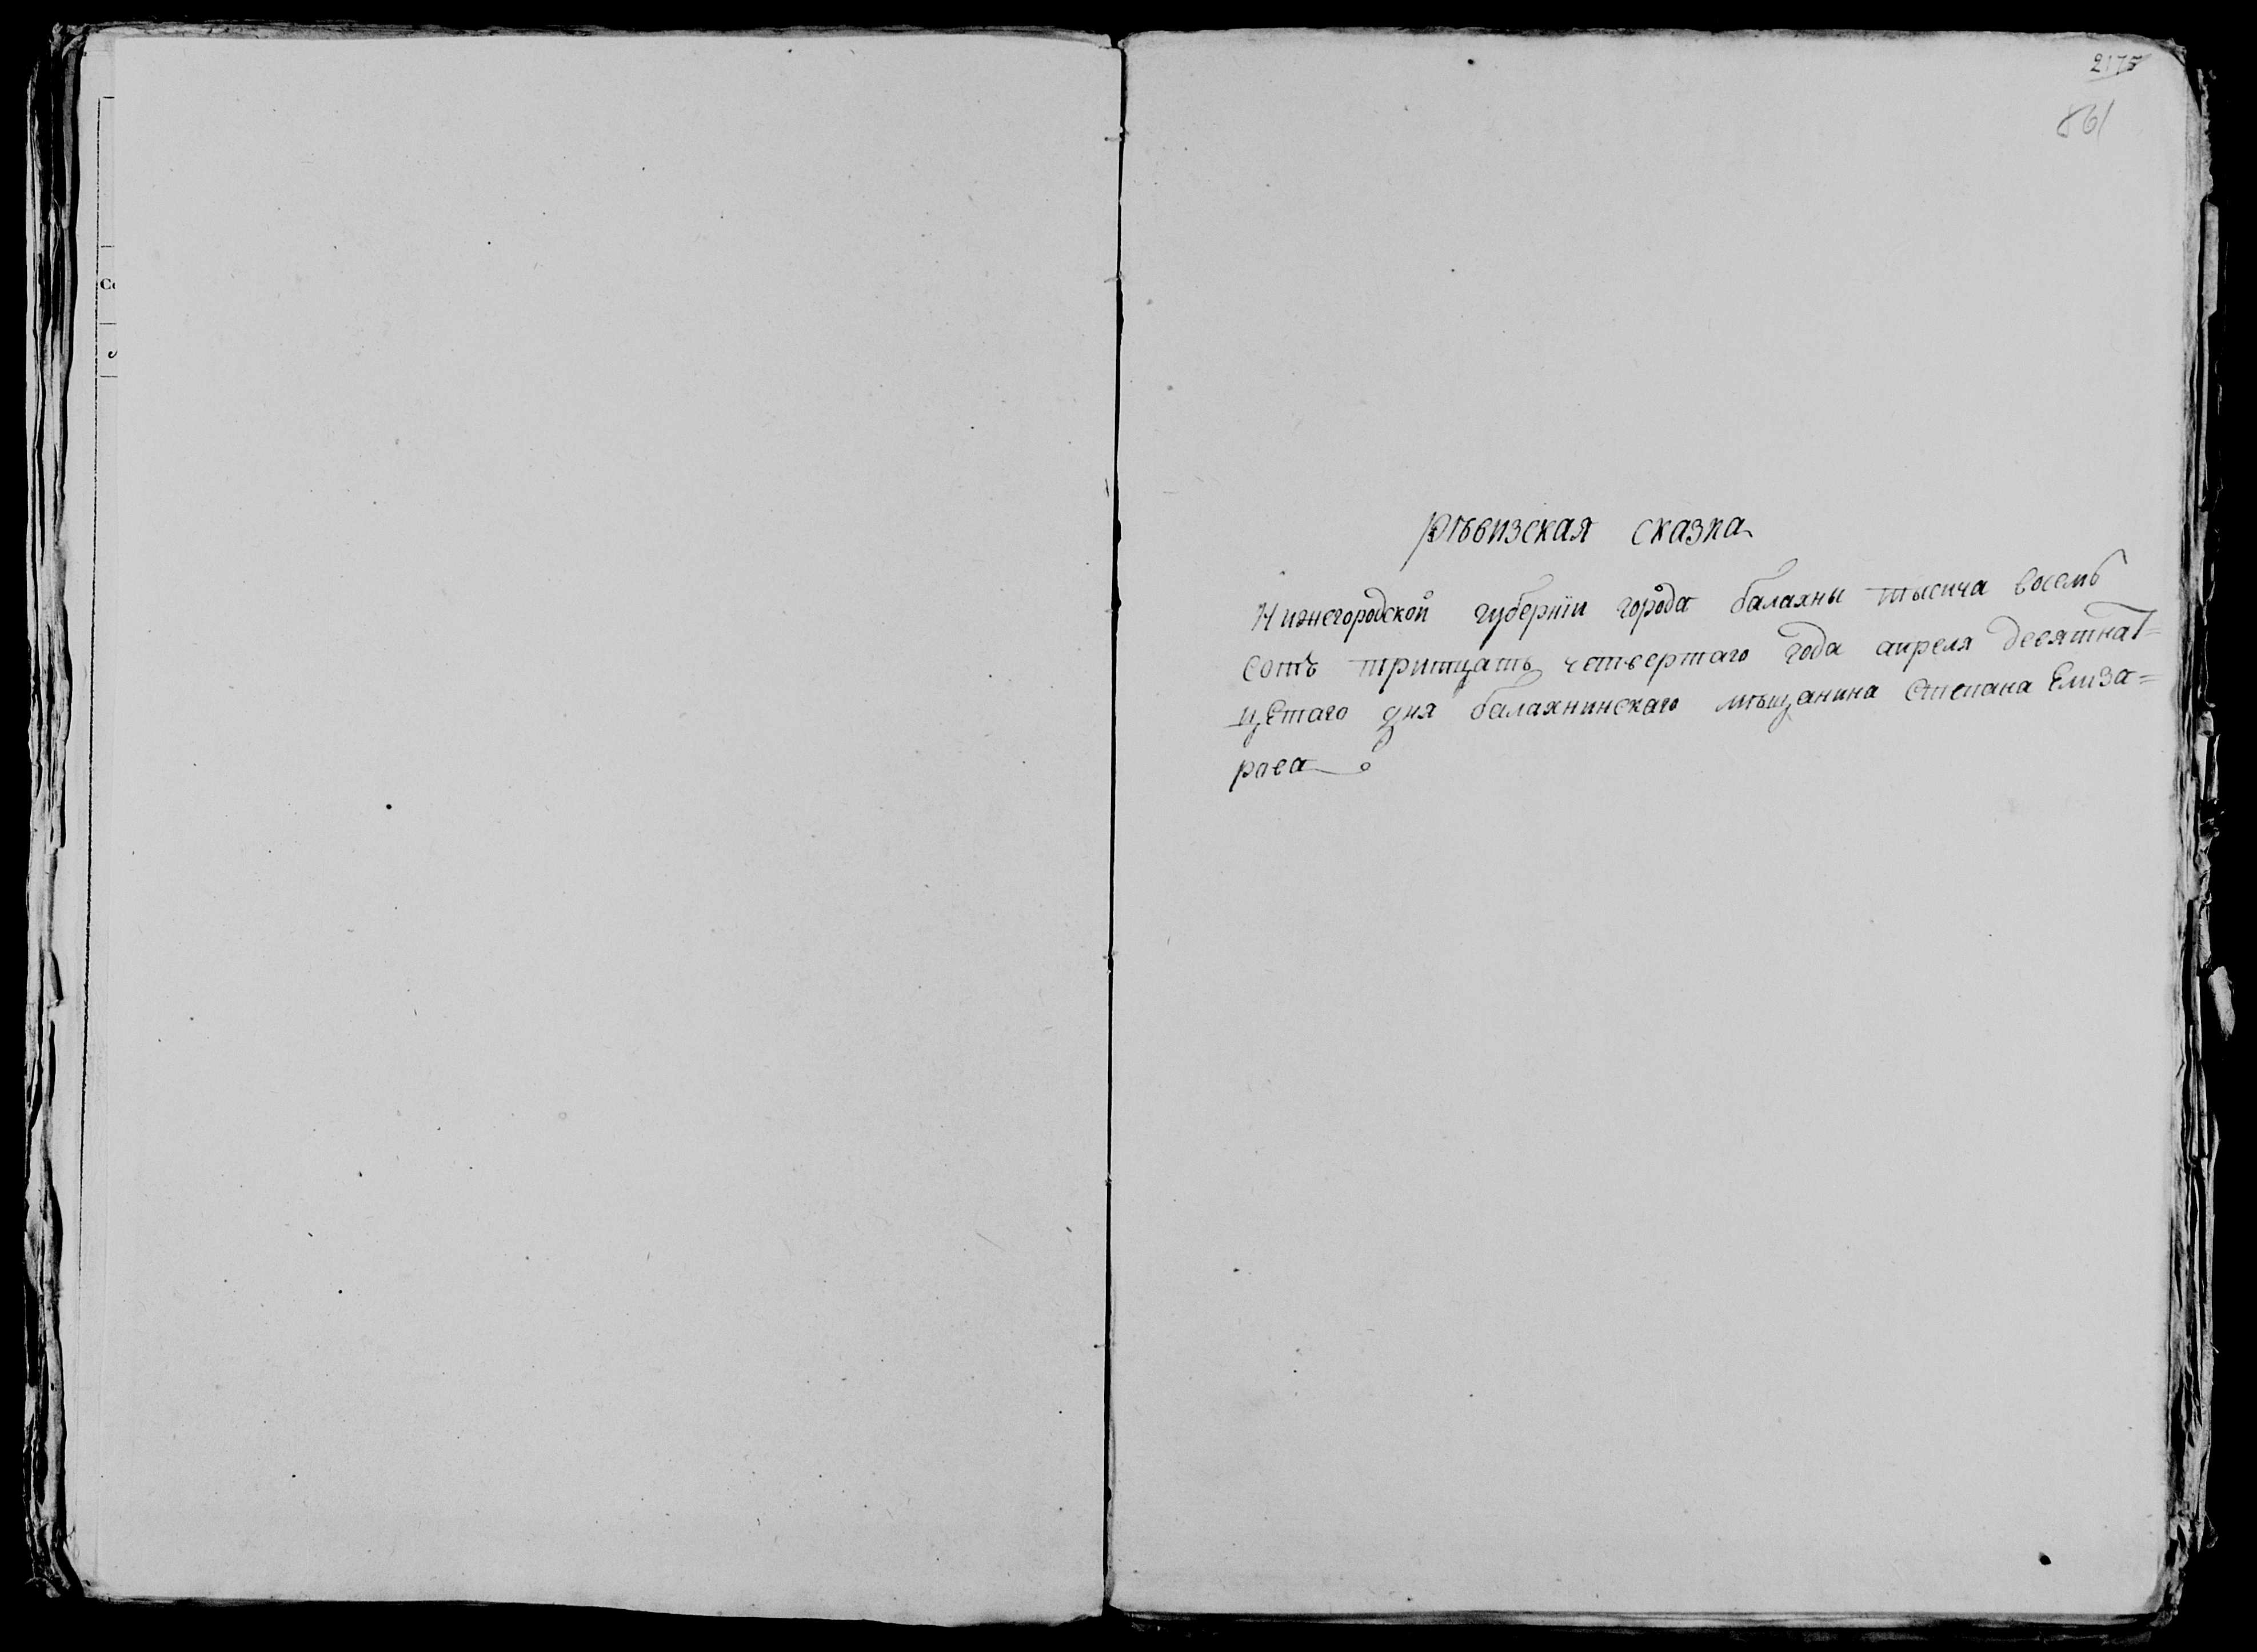 2175
861
рѣвизская сказка
Нижегородской губернїи города балахны тысича восемь
сотъ тритцать четвертаго года апреля девятнат=
цетаго дня балахнинскаго мѣщанина Степана Елиза=
рова